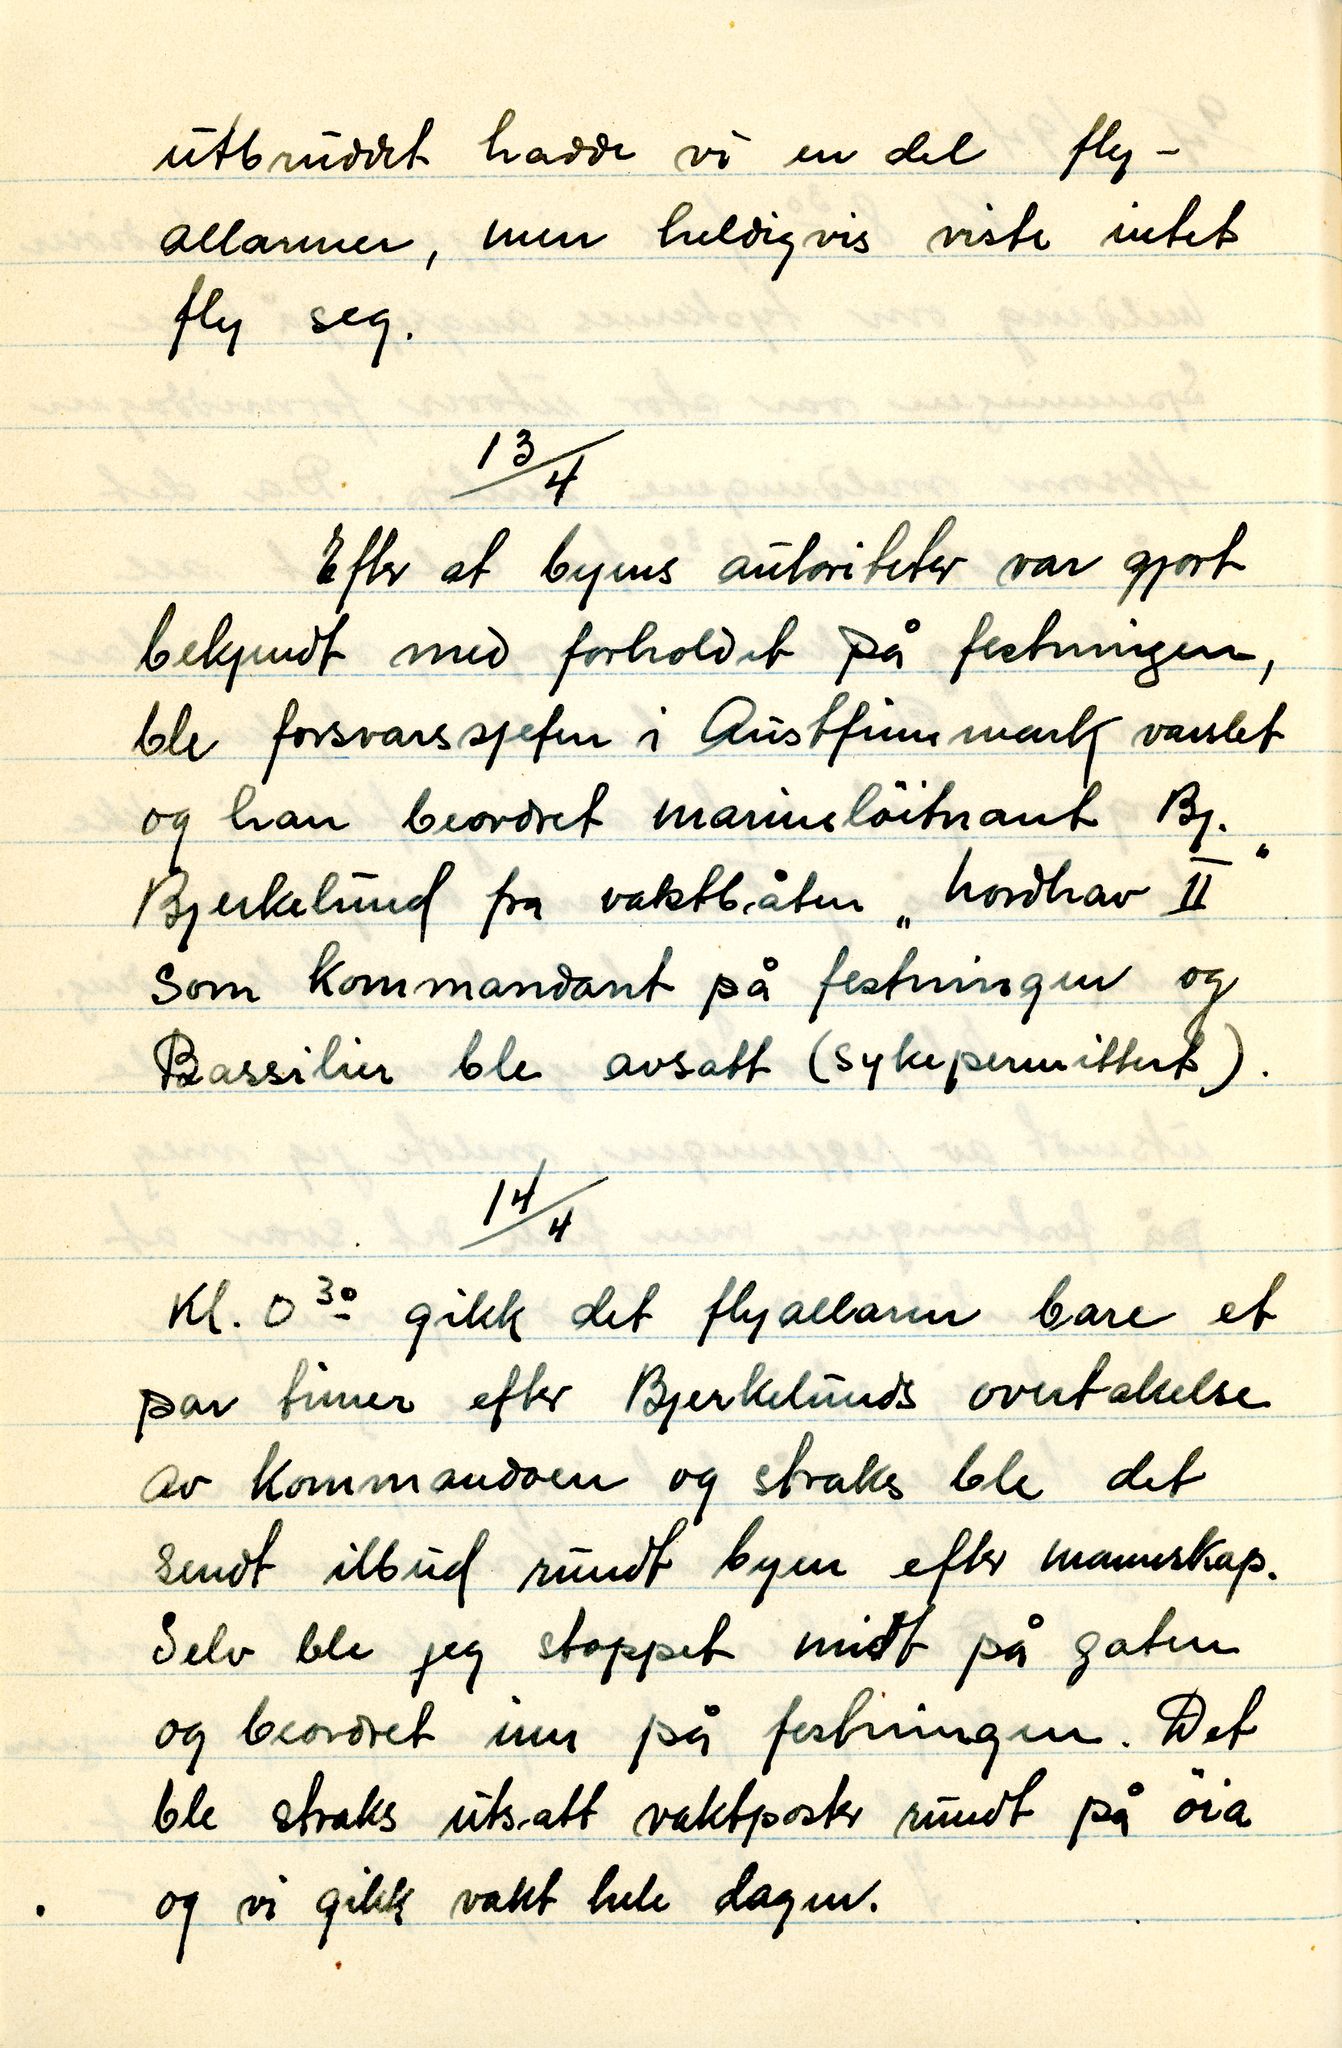 utbruddet hadde vi en del fly-
allarmer, men heldigvis viste intet
fly seg.
13/4
Efter at byens autoriteter var gjort
bekjendt med forholdet på festningen,
ble forsvarssjefen i Austfinnmark varslet
og han beordret marineløitnant Bj.
Bjerkelund fra vaktbåten „Nordhav II“
som kommandant på festningen og
Bassilier ble avsatt (sykepermittert).
14/4
Kl. 0 30 gikk det flyallarm bare et
par timer efter Bjerkelunds overtakelse
av kommandoen og straks ble det
sendt ilbud rundt byen efter mannskap.
Selv ble jeg stoppet midt på gaten
og beordret inn på festningen. Det
ble straks utsatt vaktposter rundt på öia
og vi gikk vakt hele dagen.